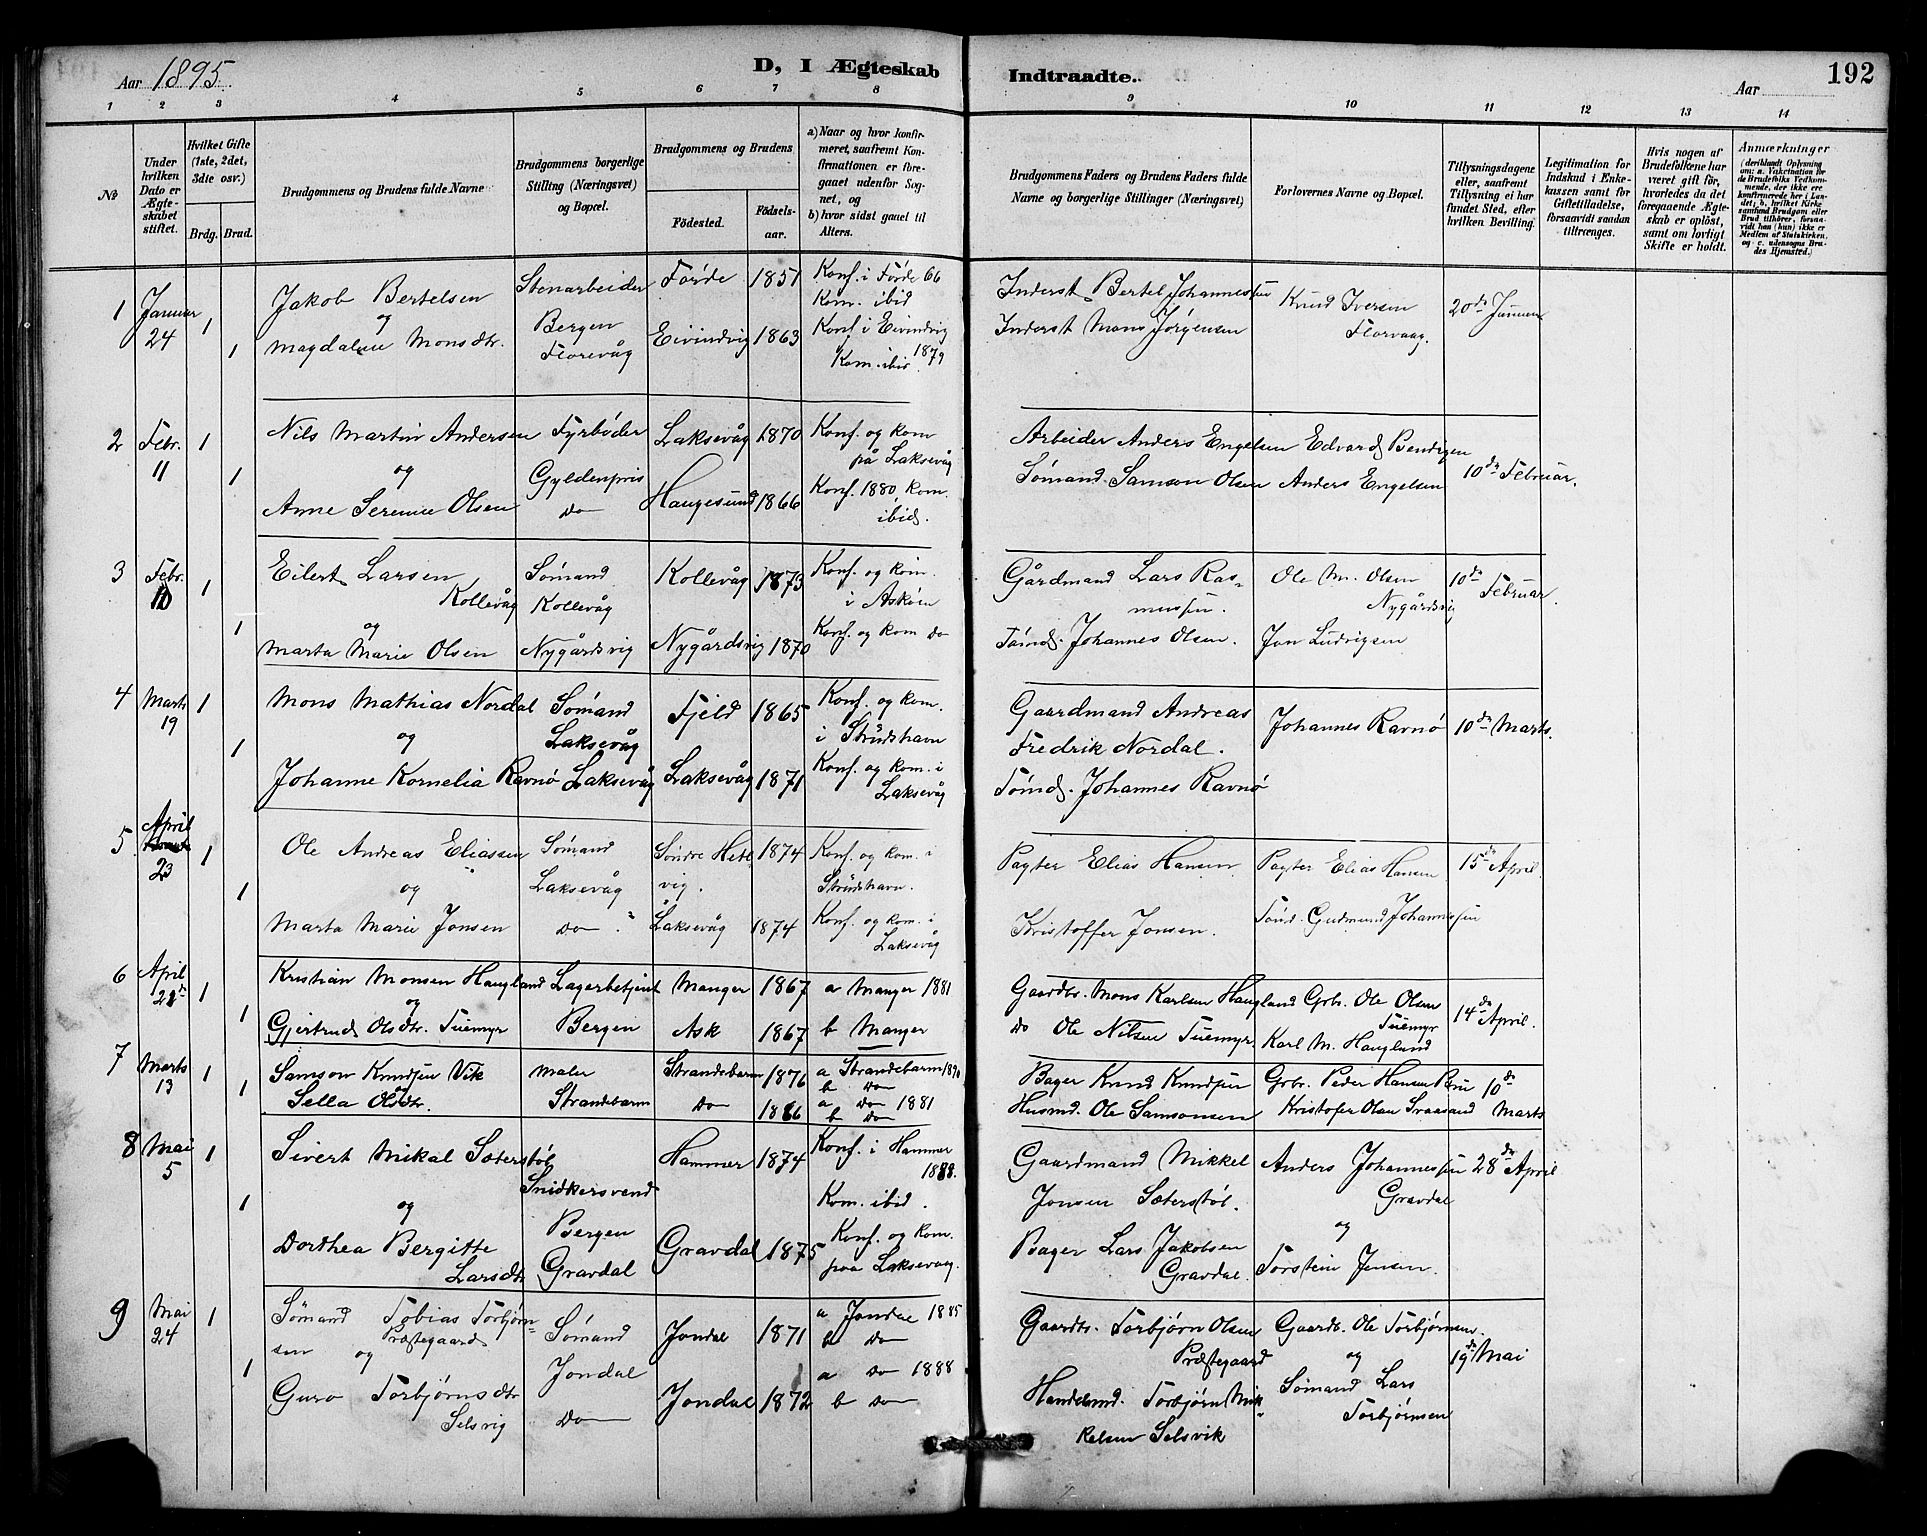 Aar 1895.
D, I Ægteskab
Indtraadte.
Aar
192
1 2 3 4 5 6 7 8 9 10 11 12 13 14
No
Under hvilken Dato er Ægteskabet stiftet.
Hvilket Gifte (1ste, 2det, 3die osv.)
Brdg. Brud.
Brudgommens og Brudens fulde Navne
Brudgommens borgerlige Stilling (Næringsvei) og Bopæl.
Brudgommens og Brudens
Födested.
Födsels-aar.
a) Naar og hvor konfirmeret, saafremt Konfirmationen er foregaaet udenfor Sognet, og
b) hvor sidst gaaet til Alters.
Brudgommens Faders og Brudens Faders fulde Navne og borgerlige Stillinger (Næringsvei)
Forlovernes Navne og Bopæl.
Tillysningsdagene eller, saafremt Tillysning ei har fundet Sted, efter hvilken Bevilling.
Legitimation for Indskud i Enkekassen samt for Giftetilladelse, forsaavidt saadan tiltrænges.
Hvis nogen af Brudefolkene har været gift før, hvorledes da det foregaaende Ægteskab er oplöst, samt om lovligt Skifte er holdt.
Anmærkninger
(deriblandt Oplysning om: a. Vakcination for de Brudefolks Vedkommende, der ikke ere konfirmerede her i Landet; b. hvilket Kirkesamfund Brudgom eller Brud tilhörer, forsaavidt han (hun) ikke er Medlem af Statskirken, og c. udensogns Brudes Hjemsted.)
1 Januar 24 1 1
Jakob Bertelsen
og
Magdalene Monsdtr.
Stenarbeider
Bergen
Florevåg
Förde 1851
Eivindvig 1863
Konf. i Förde 66
Kom. ibid
Konf. i Eivindvig 1879
Kom. ibid
Inderst Bertel Johannessen
Inderst Mons Jørgensen
Knud Iversen
Florvaag.
20de Januar
2 Febr. 11 1 1
Nils Martin Andersen
og
Anne Serenine Olsen
Fyrböder
Gyldenpris
do
Laksevåg 1870
Haugesund 1866
Konf. og kom
på Laksevåg
Konf. 1880, kom.
ibid.
Arbeider Anders Engelsen
Sömand Samson Olsen
Edvard Bendigen
Anders Engelsen
10de Februar.
3 Febr. 10 1 1
Eilert Larsen
Kollevåg
og
Marta Marie Olsen
Sömand
Kollevåg
Nygårdsvig
Kollevåg 1873
Nygårdsvig 1870
Konf. og kom.
i Asköen
Konf. og kom do
Gårdmand Lars Rasmussen.
Tömd. Johannes Olsen.
Ole M. Olsen
Nygårdsvig
Jon Ludvigsen
10de Februar.
4 Marts 19 1 1
Mons Mathias Nordal
og
Johanne Kornelia Ravnø
Sömand
Laksevåg
Laksevåg
Fjeld 1865
Laksevåg 1871
Konf. og kom.
i Strudshavn
Konf. og kom. i
Laksevåg
Gaardmand Andreas
Fredrik Nordal.
Tömd. Johannes Ravnø
Johannes Ravnø
10de Marts.
5 April 23 1 1
Ole Andreas Eliassen
og
Marta Marie Jonsen
Sömand
Laksevåg
do "
Söndre Hetlevig. 1874
Laksevåg 1874
Konf. og kom. i
Strudshavn.
Konf. og kom. i
Laksevåg
Pagter Elias Hansen
Kristoffer Jonsen.
Pagter Elias Hansen
Tömd. Gudmund Johannessen
15de April.
6 April 21de 1 1
Kristian Monsen Haugland
og
Gjertrud Olsdtr. Tuemyr
Lagerbetjent
Bergen
Manger 1867
Ask 1867
a Manger 1881
b Manger
Gaardbr. Mons Karlsen Haugland
do Ole Nilsen Tuemyr.
Grbr. Ole Olsen
Tuemyr
Karl M. Haugland
14de April.
7 Marts 13 1 1
Samson Knudsen Vik
og
Sella Olsdtr.
Maler
Strandebarm
Strandebarm 1876
do 1866
a Strandebarm 1890
b do
a do 1881
b do
Bager Knud Knudsen
Husmd. Ole Samsonsen
Grbr. Peder Hansen
Kristofer Olsn
10de Marts
8 Mai 5 1 1
Sivert Mikal Sæterstöl
og
Dorthea Bergitte
Larsdtr
Snidkersvend
Bergen
Gravdal
Hammer 1874
Gravdal 1875
Konf. i Hammer
1888.
Kom. ibid.
Konf. og kom.
paa Laksevaag.
Gaardmand Mikkel
Jonsen Sæterstöl.
Bager Lars Jakobsen
Gravdal.
Anders Johannessen
Gravdal
og
Torstein Jensen.
28de April
9 Mai 24 1 1
Sömand Tobias Torbjørnsen
Præstegaard
og
Guro Torbjørnsdtr
Selsvig
Sömand
Jondal
do
Jondal 1871
Jondal 1872
a Jondal 1885
b do
a do 1888
b do
Gaardbr. Torbjørn Olsen
Præstegaard
Handelsmd. Torbjørn Mikkelsen Selsvik
Gaardb. Ole Torbjørnsen.
og
Sömand Lars
Torbjørnsen
19de Mai